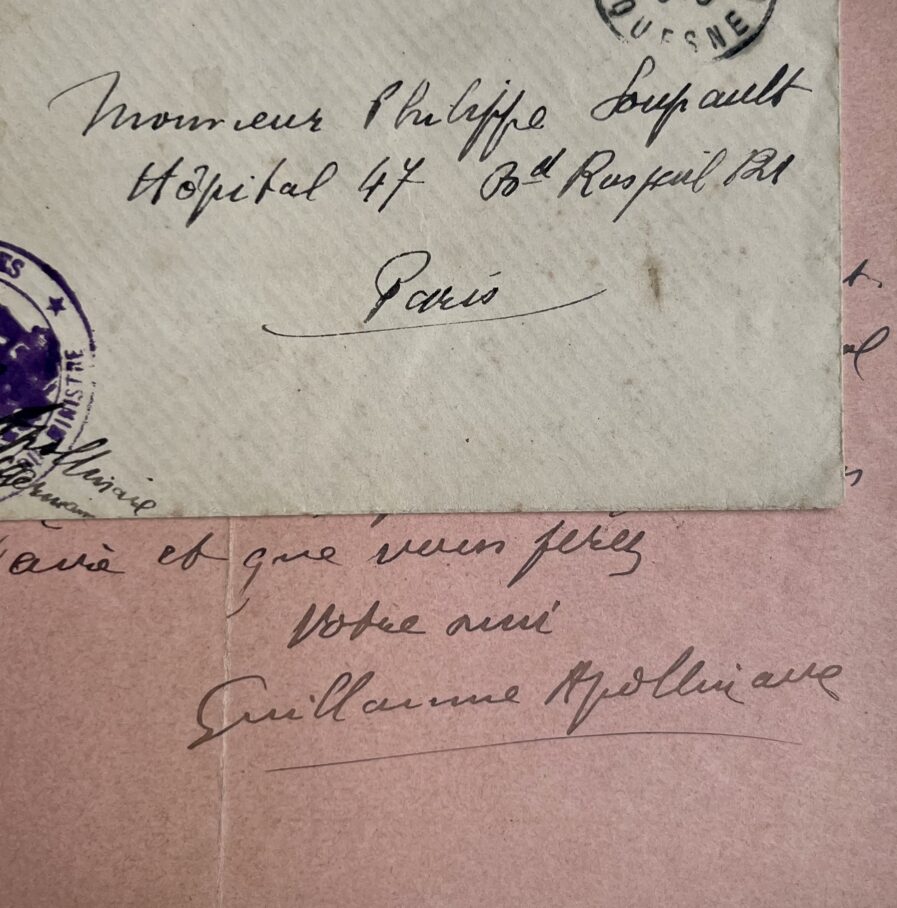 DUESNE
Monsieur Philippe Soupault
Hôpital 47 Bd Raspail 121
Paris
ES ★
MINISTRE
Apollinaire
Germain
et que vous ferez
Votre ami
Guillaume Apollinaire